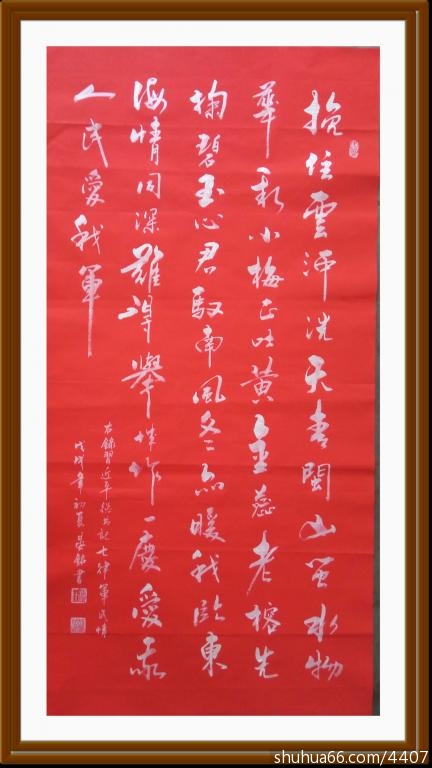 挽住雲河洗天青閩山閩水物
華新小梅正吐黄金蕊老榕先
掬碧玉心君馭南風冬亦暖我臨東
海情同深難得舉城作一慶愛我
人民愛我軍
右錄習近平總書記七律軍民情
戊戌年初夏書
shuhua66.com/4407